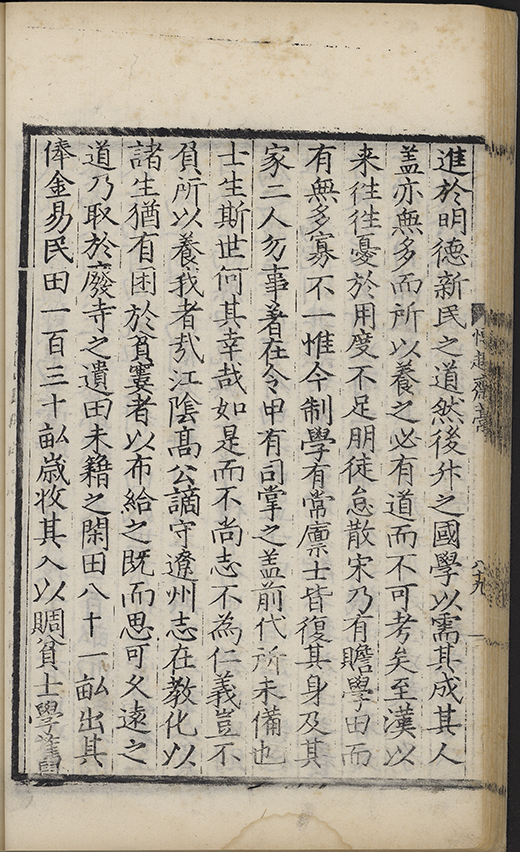 進於明德新民之道然後升之國學以需其成其人
盖亦無多而所以養之必有道而不可考矣至漢以
来徃徃憂於用度不足朋徒怠散宋乃有贍學田而
有無多寡不一惟今制學有常廪士皆復其身及其
家二人勿事著在令甲有司掌之盖前代所未備也
士生斯世何其幸哉如是而不尚志不為仁義豈不
負所以養我者㢤江陰髙公謫守遼州志在教化以
諸生猶有困於貧窶者以布給之既而思可乆遠之
道乃取於廢寺之遺田未籍之閑田八十一畝出其
俸金易民田一百三十畝歳收其入以賙貧士學舊
齋